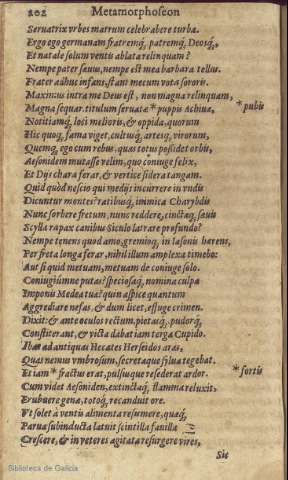 202 Metamorphoseon
Seruatrix vrbes matrum celebrabere turba.
Ergo ego germanam fratremq, patremq, Deosq,
Et natale solum ventis ablata relinquam?
Nempe pater sæuus, nempe est mea barbara tellus.
Frater adhuc infans, stant mecum vota sororis.
Maximus intra me Deus est, non magna relinquam,
Magna sequar. titulum seruatæ * puppis Achiuæ, * pubis
Notitiamq, loci melioris, & oppida, quorum
Hic quoq, fama viget, cultusq, artesq, virorum,
Quemq, ego cum rebus, quas totus possidet orbis,
Aesonidem mutasse velim, quo coniuge felix,
Et Dijs chara ferar, & vertice sidera tangam.
Quid quòd nescio qui medijs incurrere in vndis
Dicuntur montes? ratibusq, inimica Charybdis
Nunc sorbere fretum, nunc reddere, cinctaq, sæuis
Scylla rapax canibus Siculo latrare profundo?
Nempe tenens quod amo, gremioq, in Iasonis hærens,
Per freta longa ferar, nihil illum amplexa timebo:
Aut si quid metuam, metuam de coniuge solo.
Coniugiumne putas? speciosaq, nomina culpæ
Imponis Medea tuæ? quin aspice quantum
Aggrediare nefas, & dum licet, effuge crimen.
Dixit: & ante oculos rectum, pietasq, pudorq,
Constiterant, & victa dabat iam terga Cupido.
Ibat ad antiquas Hecates Perseidos aras,
Quas nemus vmbrosum, secretaque silua tegebat.
Et iam * fractus erat, pulsusque resederat ardor. * fortis
Cum videt Aesoniden, extinctaq, flamma reluxit,
Erubuere genæ, totoq, recanduit ore.
Vt solet à ventis alimenta resumere, quæq,
Parua sub inducta latuit scintilla fauilla
Crescere, & in veteres agitata resurgere vires,
Sic
Biblioteca de Galicia